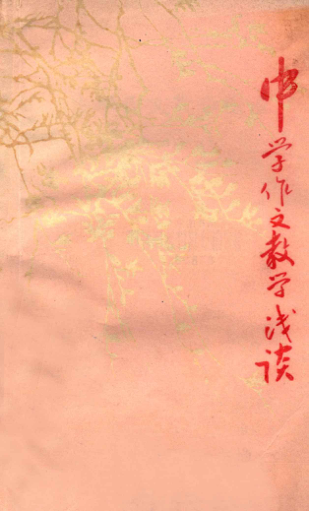 中学作文教学浅谈